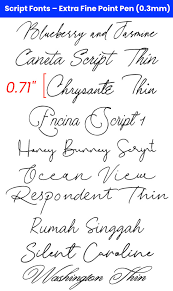 Script Fonts – Extra Fine Point Pen (0.3mm)
Blueberry and Jasmine
Caneta Script Thin
0.71" Chrysante Thin
Encina Script 1
Honey Bunney Script
Ocean View
Respondent Thin
Rumah Singgah
Silent Caroline
Washington Thin